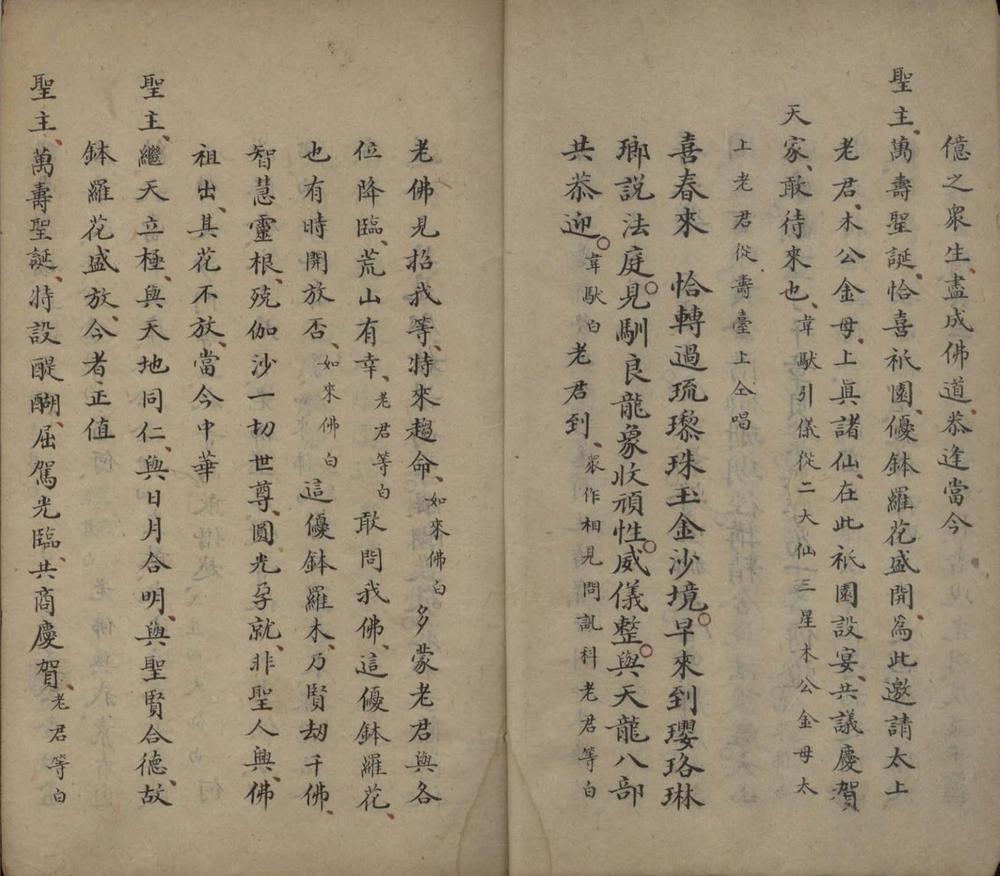 億之衆生、盡成佛道、恭逢當今
聖主、萬壽聖誕、恰喜祇園、優鉢羅花盛開、為此邀請太上
老君、木公金母、上眞諸仙、在此祇園設宴、共議慶賀
天家、敢待來也、韋馱引儀從二大仙三星木公金母太
上老君從壽臺上仝唱
喜春來　恰轉過琉瓈珠玉金沙境。早來到瓔珞琳
瑯説法庭。見馴良龍象收頑性。威儀整。與天龍八部
共恭迎。韋馱白老君到、衆作相見問訊科老君等白
老佛見招我等、特來趨命、如來佛白多蒙老君與各
位降臨、荒山有幸、老君等白敢問我佛、這優鉢羅花、
也有時開放否、如來佛白這優鉢羅木、乃賢劫千佛、
智慧靈根、殑伽沙一切世尊、圓光孕就、非聖人興、佛
祖出、其花不放、當今中華
聖主、繼天立極、與天地同仁、與日月合明、與聖賢合德、故
鉢羅花盛放、今者正值
聖主、萬壽聖誕、特設醍醐、屈駕光臨、共商慶賀、老君等白